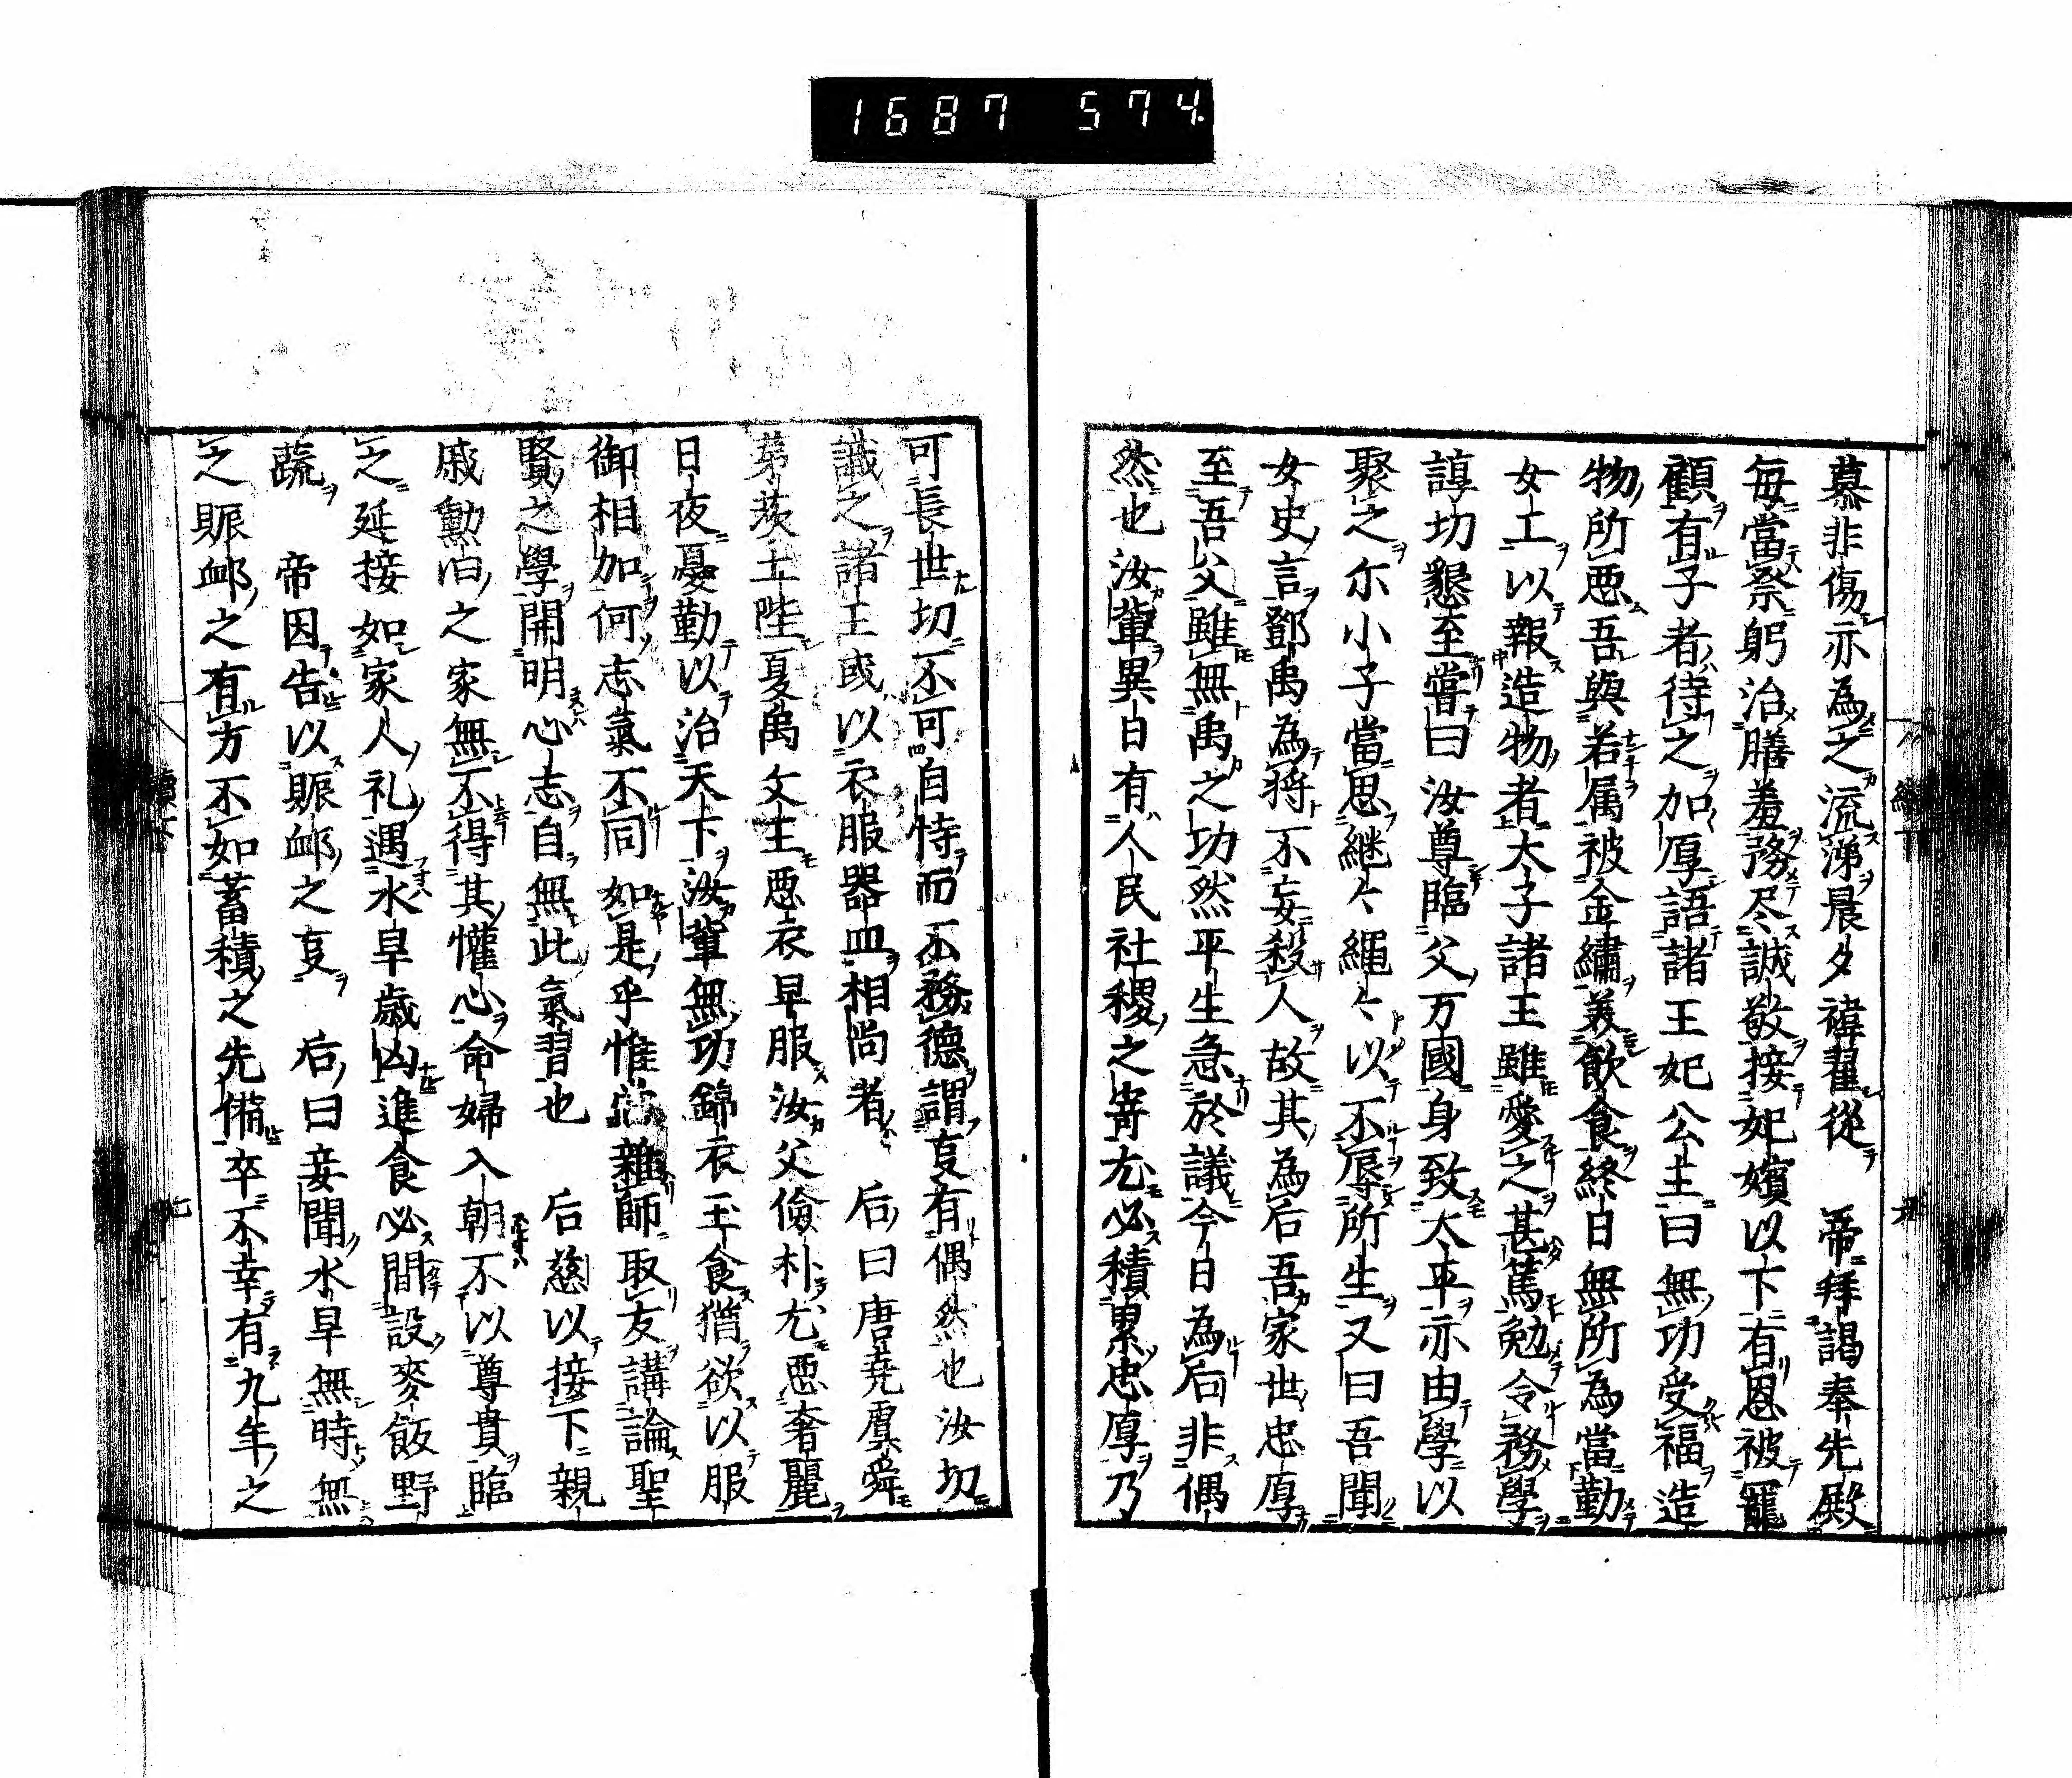 1687 574.
慕非傷亦為之流涕晨夕褘翟從　帝拜謁奉先殿
毎當祭躬治膳羞務尽誠敬接妃嬪以下有恩被寵
顧有子者待之加厚語諸王妃公主曰無功受福造
物所悪吾與若属被金繡美飲食終日無所為當勤
女工以報造物者太子諸王雖愛之甚篤勉令務學
諄切懇至嘗曰汝尊臨父万國身致太平亦由學以
聚之尓小子當思継〻繩〻以不辱所生又曰吾聞
女史言鄧禹為将不妄殺人故其為后吾家世忠厚
至吾父雖無禹之功然平生急於議今日為后非偶
然也汝輩異日有人民社稷之寄尤必積累忠厚乃
可長世切不可自恃而不務德謂㕝有偶然也汝切
識之諸王或以衣服器皿相尚者　后曰唐堯虞舜
茅茨土陛夏禹文王悪衣早服汝父儉朴尤悪奢麗
日夜憂勤以治天下汝輩無功錦衣玉食猶欲以服
御相加何志氣不同如是乎惟當親師取友講論聖
賢之學開明心志自無此氣習也　后慈以接下親
戚勳旧之家無不得其懽心命婦入朝不以尊貴臨
之延接如家人礼遇水旱歳凶進食必間設麥飯野
蔬　帝因告以賑䘏之㕝　后曰妾聞水旱無時無
之賑䘏之有方不如蓄積之先備卒不幸有九年之
續下
七